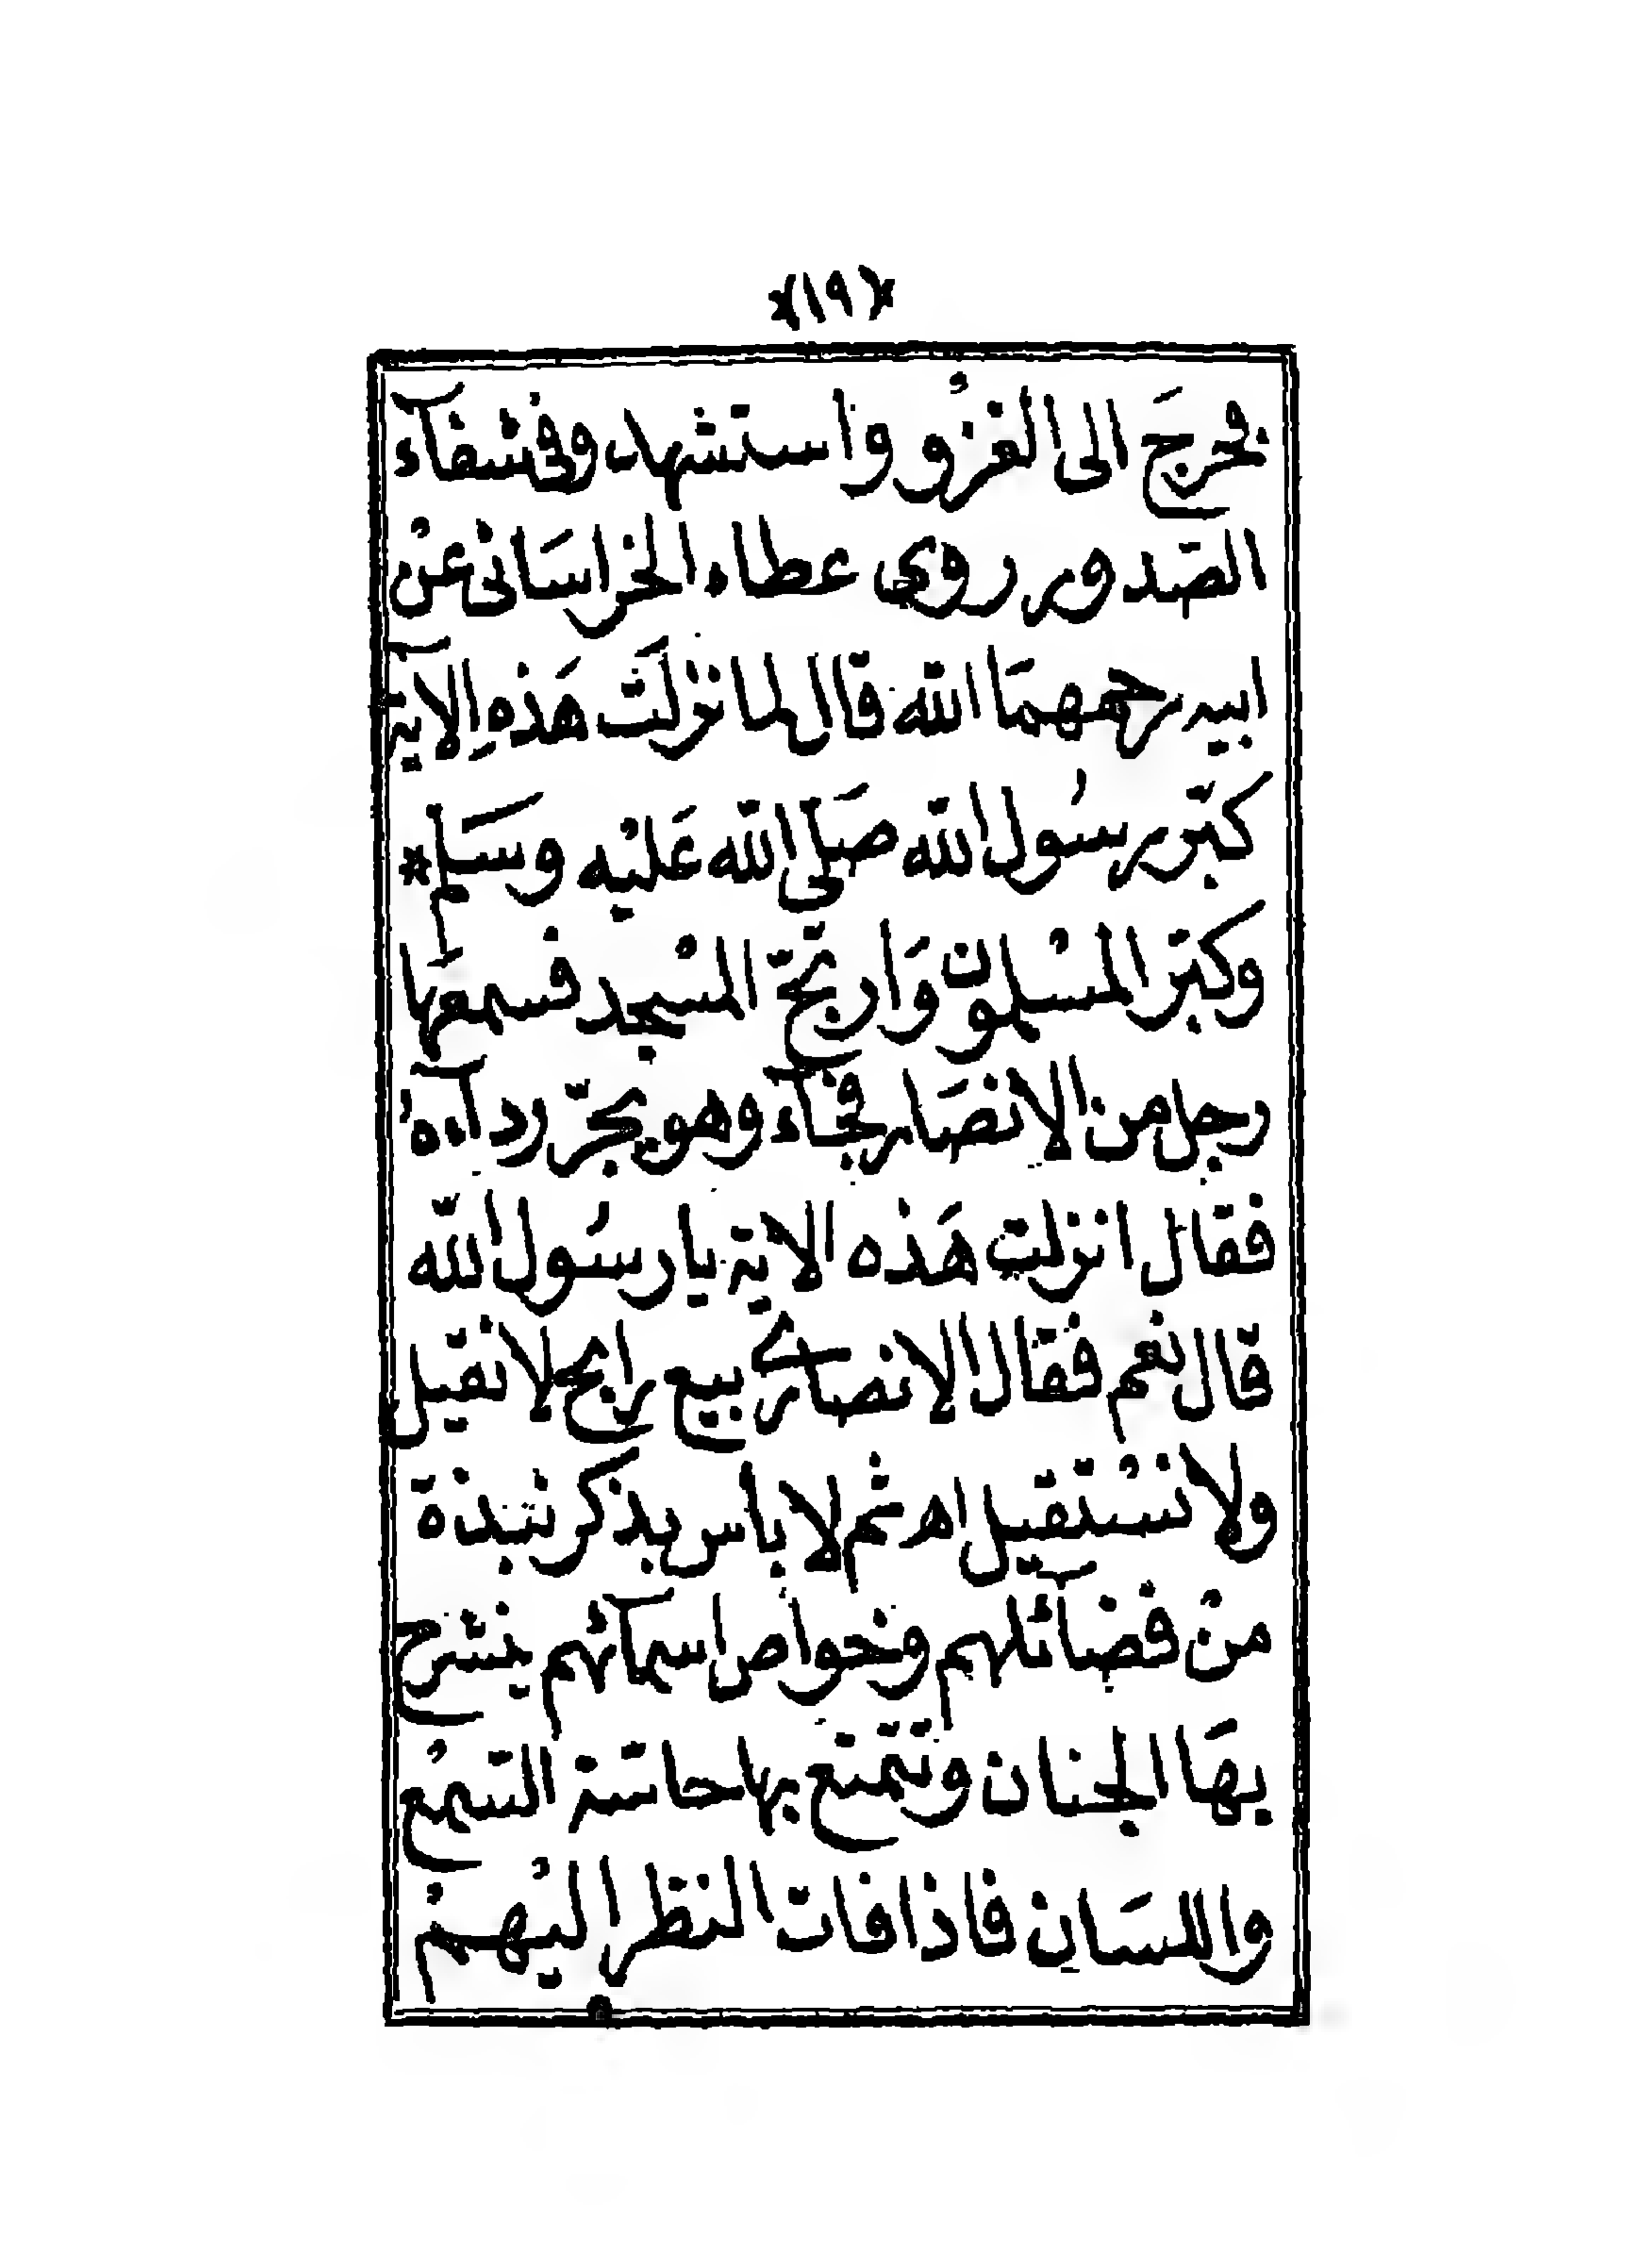 *(١٩)*
فخرجَ الى الغزْوِ واستشهد وفى شفآء
الصّدور روى عطاء الخراسَانى عنْ
ابيه رحمهمَا الله قال لما نزلَت هَذهِ الآية
كبّر رسُول الله صَلى الله عَليْه وسَلم *
وكبّر المسْلمون وَارتجّ المسْجد فسمعَها
رجل من الانصَار فجآء وهو يجرّ ردآءهُ
فقال انزلت هَذه الاية يا رسُول الله
قال نعم فقال الانصارى بيع رابح لا نقيل
ولا نسْتقيل اهـ ثم لا بأس بذكر نبذة
منْ فضآئلهم وخواص اسمآئهم ينشرح
بهَا الجنان وتتمتع بها حاسّة السّمْع
واللسَان فاذا فات النظر اليْهمْ